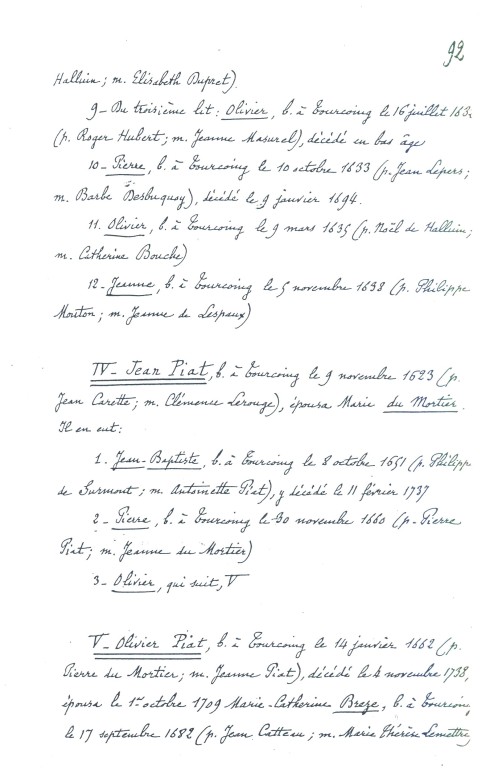 92
Halluin ; m. Elisabeth Dupret).
9- Du troisième lit : Olivier, b. à Tourcoing le 16 juillet 163
(p. Roger Hubert ; m. Jeanne Masurel), décédé en bas âge
10- Pierre, b. à Tourcoing le 10 octobre 1633 (p. Jean Lepers ;
m. Barbe Desbuquoy), décédé le 9 janvier 1694.
11. Olivier, b. à Tourcoing le 9 mars 1635 (p. Noël de Halluin ;
m. Catherine Bouche)
12- Jeanne, b. à Tourcoing le 5 novembre 1638 (p. Philippe
Mouton ; m. Jeanne de Lespaux)
IV- Jean Piat, b. à Tourcoing le 9 novembre 1623 (p.
Jean Carette ; m. Clémence Lerouge), épousa Marie du Mortier.
Il en eut :
1. Jean-Baptiste, b. à Tourcoing le 8 octobre 1651 (p. Philipp
de Surmont ; m. Antoinette Piat), y décédé le 11 février 1737
2- Pierre, b. à Tourcoing le 30 novembre 1660 (p- Pierre
Piat ; m. Jeanne du Mortier)
3- Olivier, qui suit, V
V- Olivier Piat, b. à Tourcoing le 14 janvier 1662 (p.
Pierre du Mortier ; m. Jeanne Piat), décédé le 4 novembre 1738,
épousa le 1er octobre 1709 Marie-Catherine Braze, b. à Tourcoing
le 17 septembre 1682 (p. Jean Catteau ; m. Marie Thérèse Lemettre